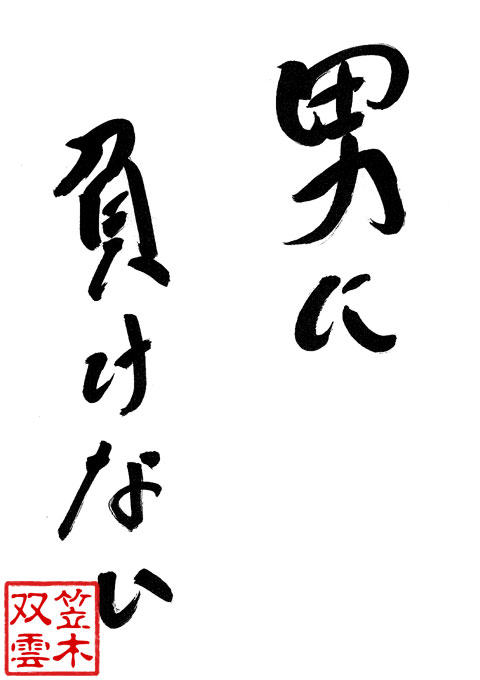 男に
負けない
笠木
双雲